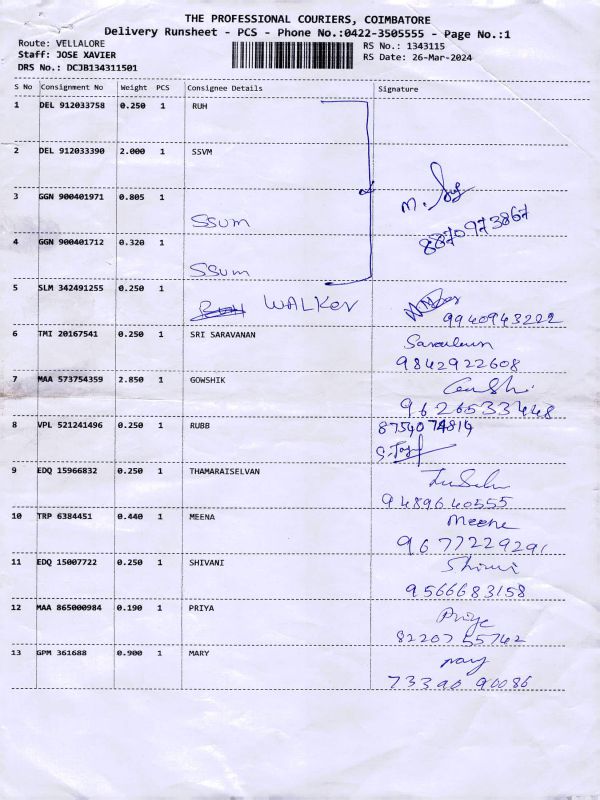 THE PROFESSIONAL COURIERS, COIMBATORE
Delivery Runsheet - PCS - Phone No.:0422-3505555 - Page No.:1
Route: VELLALORE RS No.: 1343115
Staff: JOSE XAVIER RS Date: 26-Mar-2024
DRS No.: DCJB134311501
S No Consignment No Weight PCS Consignee Details Signature
1 DEL 912033758 0.250 1 RUH
2 DEL 912033390 2.000 1 SSVM
3 GGN 900401971 0.805 1 SSUM
M.
8870973867
4 GGN 900401712 0.320 1 SSUM
5 SLM 342491255 0.250 1 WALKER
9940943222
6 TMI 20167541 0.250 1 SRI SARAVANAN
9842922608
7 MAA 573754359 2.850 1 GOWSHIK
9626533448
8 VPL 521241496 0.250 1 RUBB 8754074814
9 EDQ 15966832 0.250 1 THAMARAISELVAN
9489640555
10 TRP 6384451 0.440 1 MEENA Meena
9677229291
11 EDQ 15007722 0.250 1 SHIVANI
9566683158
12 MAA 865000984 0.190 1 PRIYA Priya
8220755742
13 GPM 361688 0.900 1 MARY mary
73390 90086